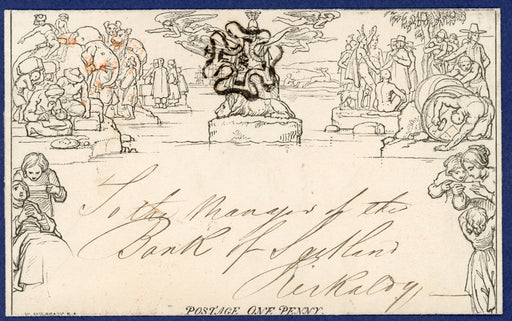 To the Manager of the
Bank of Scotland
Kirkaldy
POSTAGE ONE PENNY.
W. MULREADY R.A.